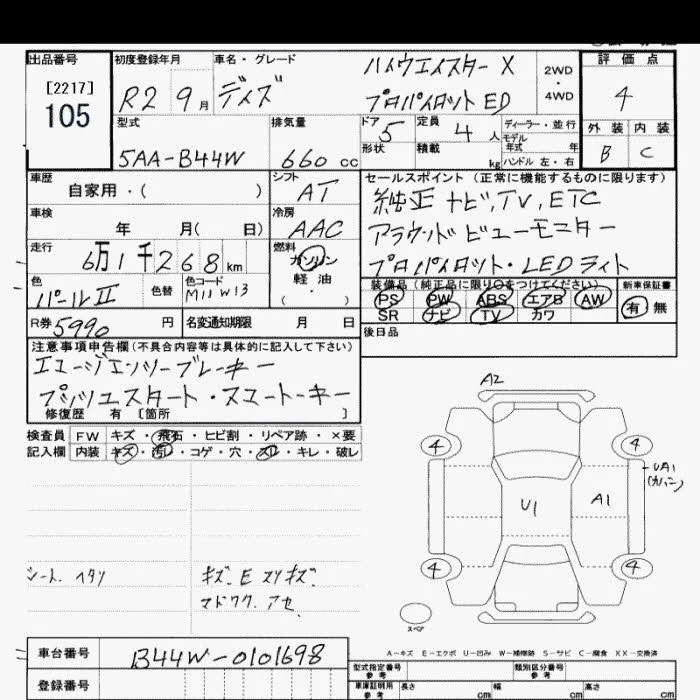 出品番号
[2217]
105
初度登録年月
R2 9月
車名・グレード
デイズ
ハイウエイスター X
プロパイロット ED
2WD
・
4WD
評価点
4
外装 内装
B C
型式
5AA-B44W
排気量
660 cc
ドア 5
定員 4人
形状
積載 kg
ディーラー・並行
モデル
年式 年
ハンドル 左・右
車歴
自家用・( )
シフト
AT
車検
年 月( 日)
冷房
AAC
セールスポイント (正常に機能するものに限ります)
純正 ナビ,TV,ETC
アラウンドビューモニター
プロパイロット・LEDライト
走行
6万1千268km
燃料
ガソリン
軽油
( )
色
パールⅡ
色替
色コード
M11 W13
装備品 (純正品に限り○をつけてください)
PS PW ABS エアB AW
SR ナビ TV カワ
新車保証書
有 無
R券 5990 円
名変通知期限 月 日
後日品
注意事項申告欄 (不具合内容等は具体的に記入して下さい)
エマージエンシーブレーキー
プッシュスタート・スマートーキー
修復歴 有 [箇所 ]
検査員
記入欄
FW キズ・飛石・ヒビ割・リペア跡・×要
内装 キズ・汚レ・コゲ・穴・スレ・キレ・破レ
シート. ヘタリ
キズ. E スリキズ.
マドワク. アセ.
A2
4
4
U1
A1
UA1
4
4
スペア
A－キズ E－エクボ U－凹み W－補修跡 S－サビ C－腐食 XX－交換済
車台番号
B44W-0101698
登録番号
型式指定番号
参考
類別区分番号
参考
車庫証明用
参考
長さ cm
幅 cm
高さ cm